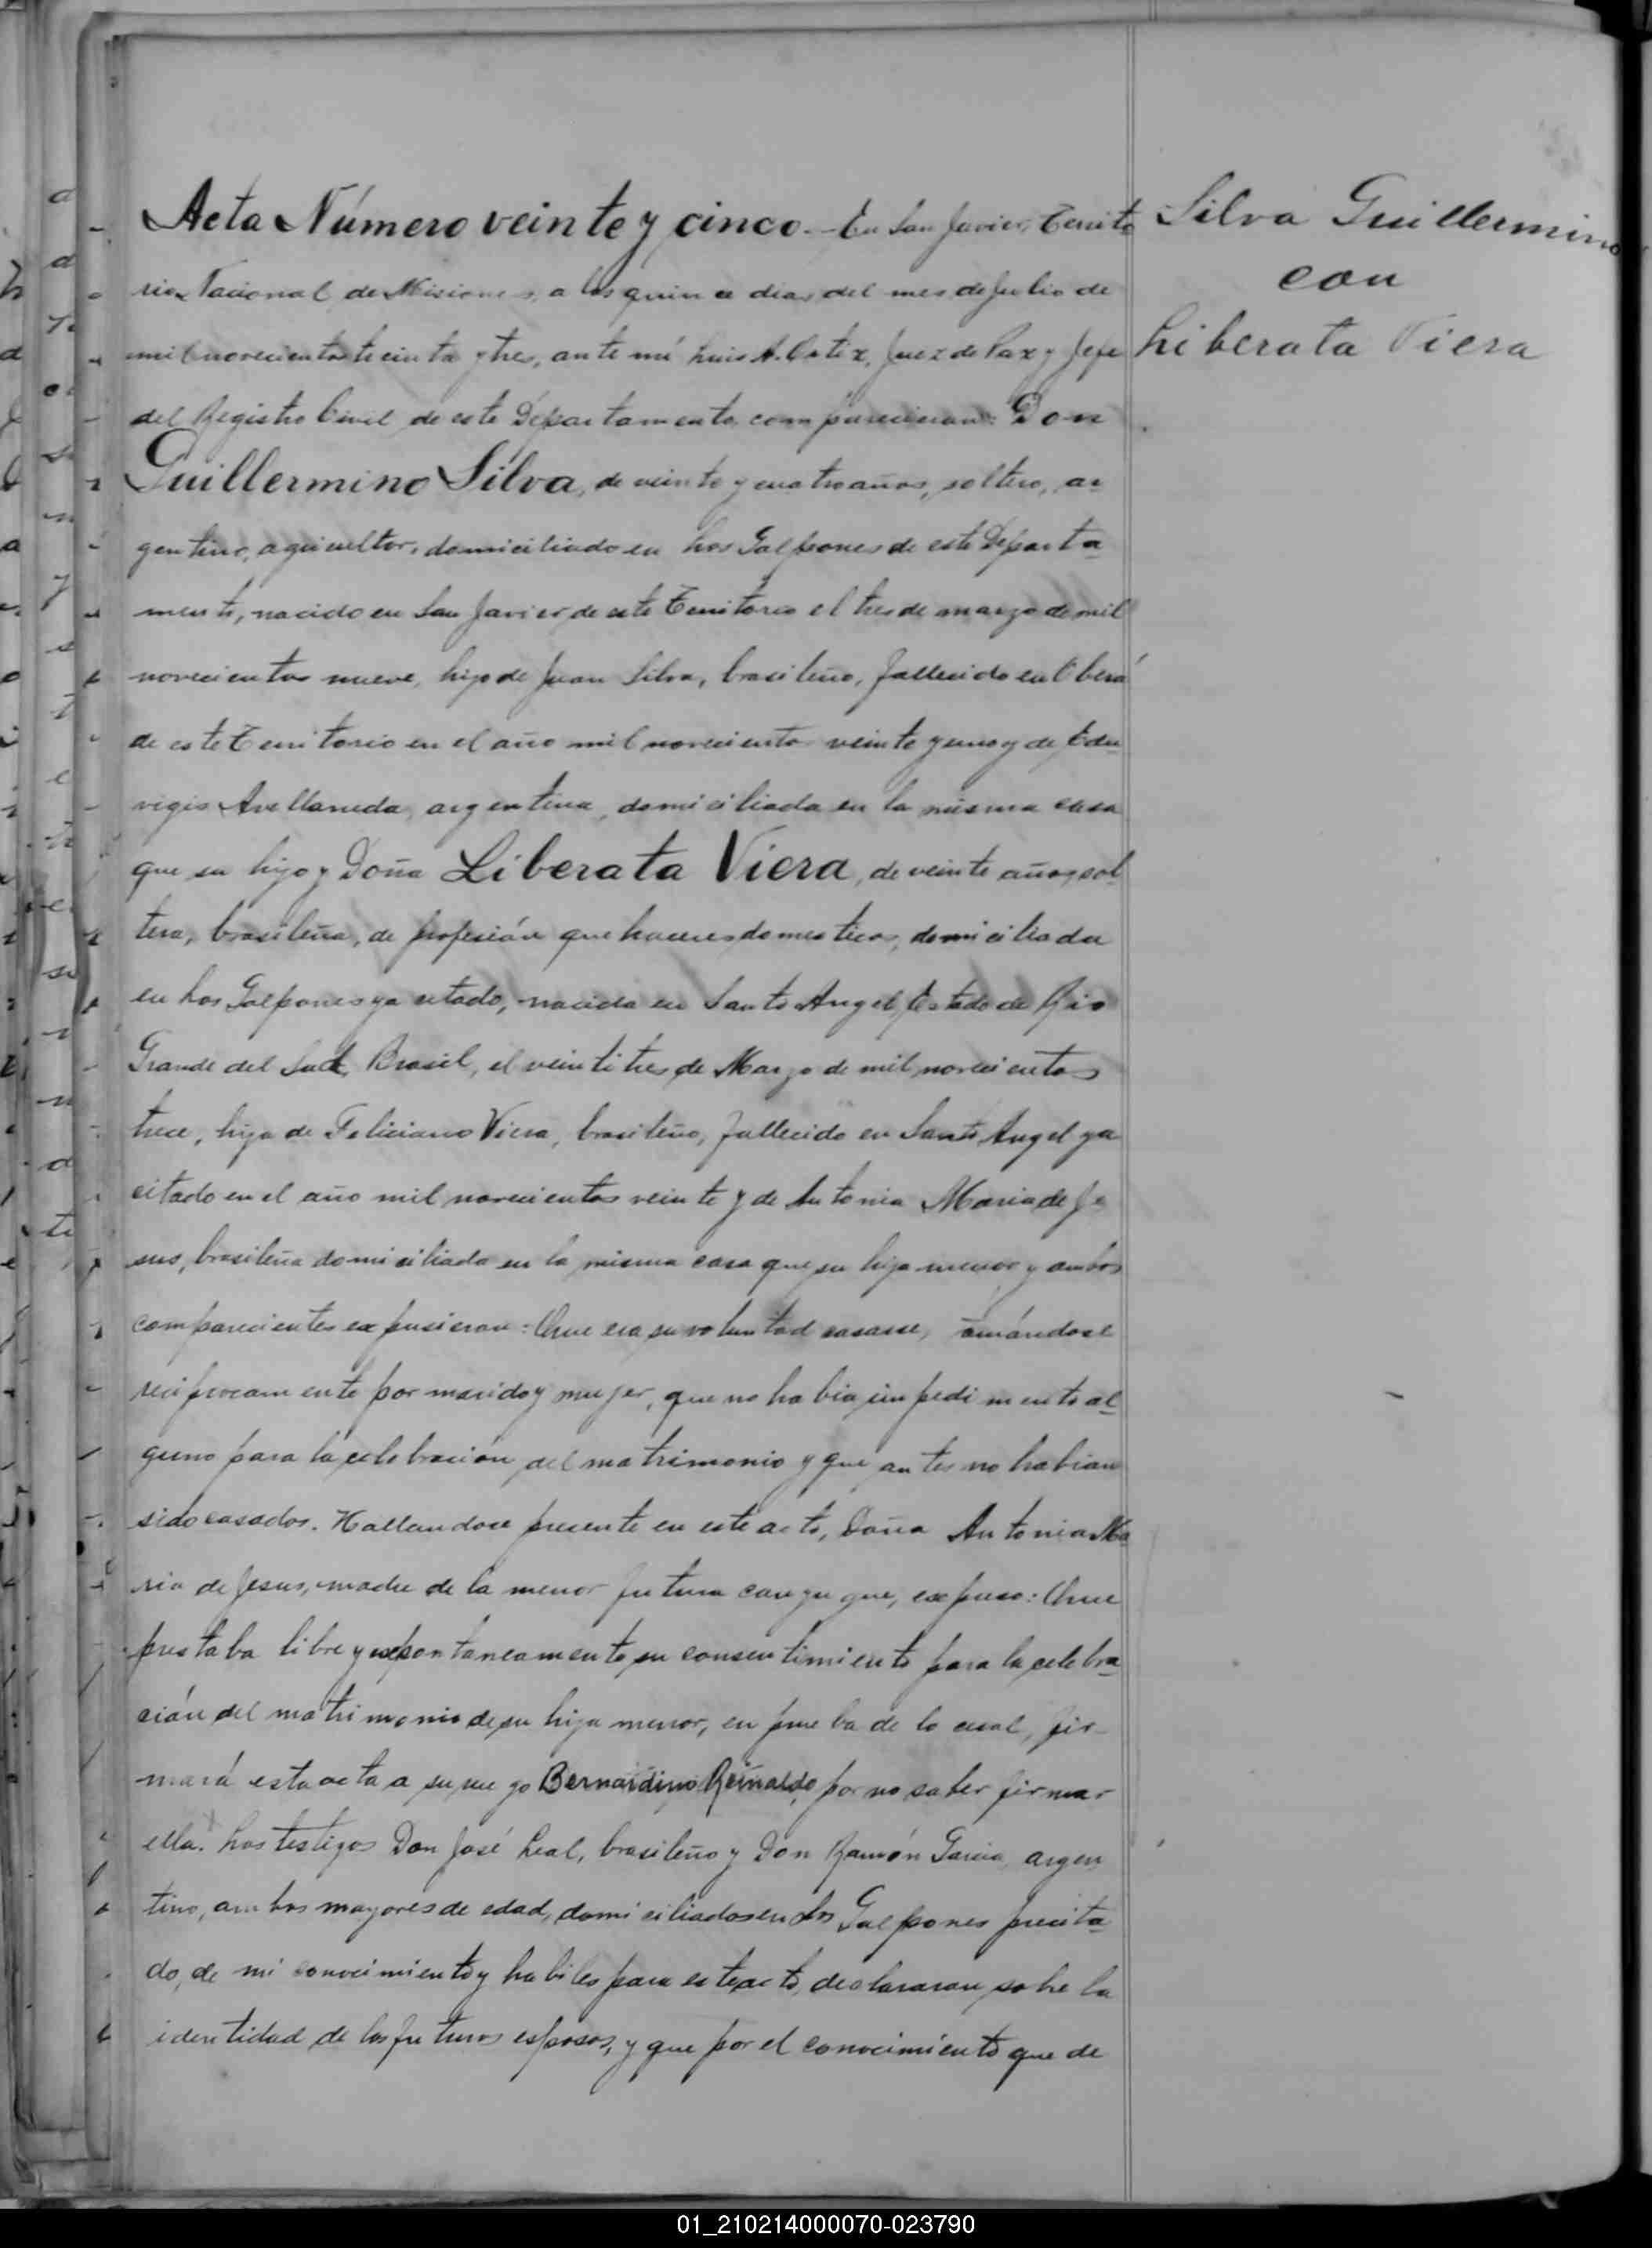 Acta Número veinte y cinco.- En San Javier, Territo
rio Nacional de Misiones, a los quince dias del mes de Julio de
mil novecientos treinta y tres, ante mí Luis A. Ortiz, Juez de Paz y Jefe
del Registro Civil de este Departamento, comparecieron: Don
Guillermino Silva, de veinte y cuatro años, soltero, ar
gentino, agricultor, domiciliado en Los Galpones de este Departa
mento, nacido en San Javier de este Territorio el tres de marzo de mil
novecientos nueve, hijo de Juan Silva, brasileño, fallecido en Oberá
de este Territorio en el año mil novecientos veinte y uno y de Edu
vigis Avellaneda, argentina, domiciliada en la misma casa
que su hijo y Doña Liberata Viera, de veinte años, sol
tera, brasileña, de profesión quehaceres domesticos, domiciliada
en Los Galpones ya citado, nacida en Santo Angel, Estado de Rio
Grande del Sud, Brasil, el veintitres de Marzo de mil novecientos
trece, hija de Feliciano Viera, brasileño, fallecido en Santo Angel ya
citado en el año mil novecientos veinte y de Antonia Maria de Je
sus, brasileña domiciliada en la misma casa que su hija menor y ambos
comparecientes expusieron: Que era su voluntad casarse, tomándose
reciprocamente por marido y mujer, que no habia impedimento al
guno para la celebración del matrimonio y que antes no habian
sido casados. Hallandose presente en este acto, Doña Antonia Ma
ria de Jesus, madre de la menor futura conyugue, expuso: Que
prestaba libre y espontaneamente su consentimiento para la celebra
ción del matrimonio de su hija menor, en prueba de lo cual, fir-
mará esta acta a su ruego Bernardino Reinaldo, por no saber firmar
ella. Los testigos Don José Leal, brasileño y Don Ramón Garcia, argen
tino, ambos mayores de edad, domiciliados en Los Galpones precita
do, de mi conocimiento y habiles para este acto, declararon sobre la
identidad de los futuros esposos, y que por el conocimiento que de
Silva Guillermino
con
Liberata Viera
01_210214000070-023790